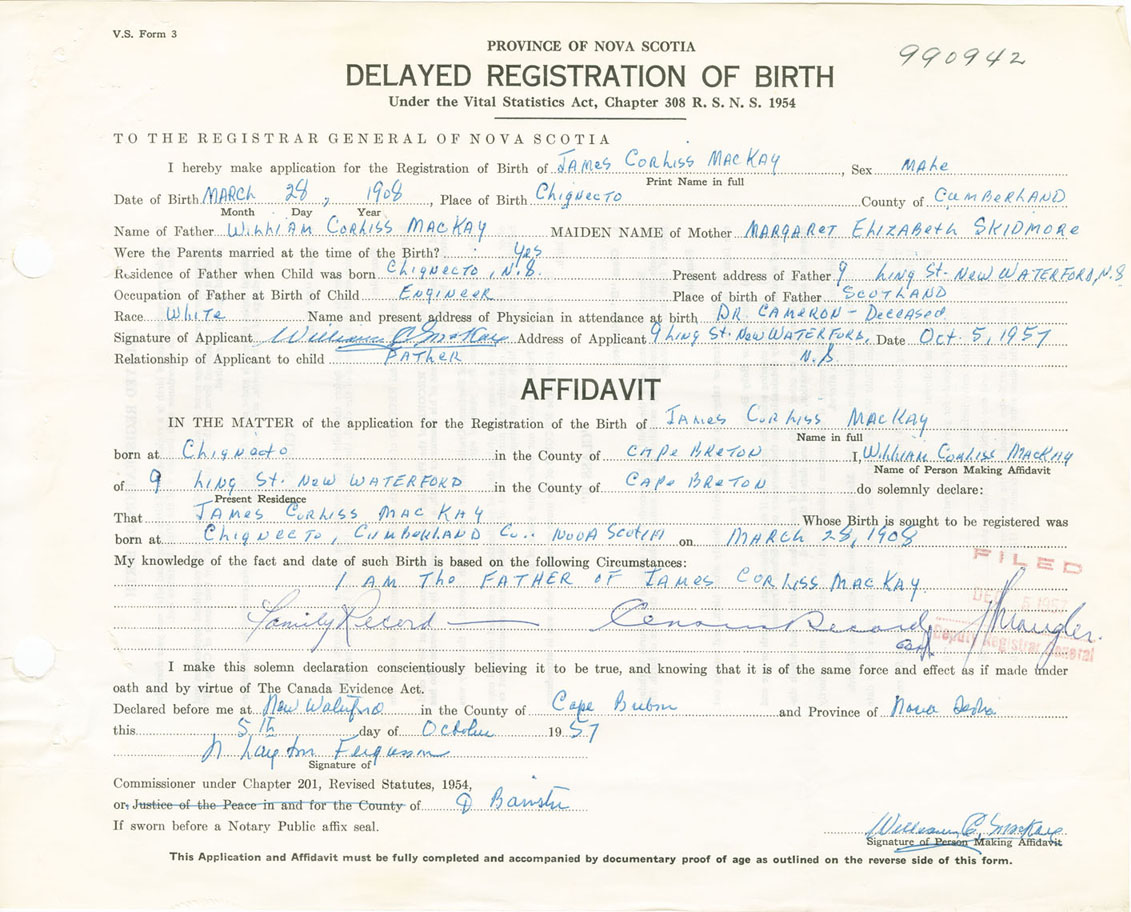 V.S. Form 3
PROVINCE OF NOVA SCOTIA
990942
DELAYED REGISTRATION OF BIRTH
Under the Vital Statistics Act, Chapter 308 R. S. N. S. 1954
TO THE REGISTRAR GENERAL OF NOVA SCOTIA
I hereby make application for the Registration of Birth of James Corliss MacKay, Sex Male
Print Name in full
Date of Birth March 28, 1908, Place of Birth Chignecto County of Cumberland
Month Day Year
Name of Father William Corliss MacKay MAIDEN NAME of Mother Margaret Elizabeth Skidmore
Were the Parents married at the time of the Birth? Yes
Residence of Father when Child was born Chignecto, N.S. Present address of Father 9 Ling St. New Waterford, N.S
Occupation of Father at Birth of Child Engineer Place of birth of Father Scotland
Race White Name and present address of Physician in attendance at birth Dr. Cameron - Deceased
Signature of Applicant William C. MacKay Address of Applicant 9 Ling St. New Waterford, Date Oct. 5, 1957
Relationship of Applicant to child Father N.S
AFFIDAVIT
IN THE MATTER of the application for the Registration of the Birth of James Corliss MacKay
Name in full
born at Chignecto in the County of Cape Breton I, William Corliss MacKay
Name of Person Making Affidavit
of 9 Ling St. New Waterford in the County of Cape Breton do solemnly declare:
Present Residence
That James Corliss MacKay Whose Birth is sought to be registered was
born at Chignecto, Cumberland Co.. Nova Scotia on March 28, 1908
My knowledge of the fact and date of such Birth is based on the following Circumstances:
I am the Father of James Corliss MacKay
FILED
Family Record — Census Record
Deputy Registrar General
I make this solemn declaration conscientiously believing it to be true, and knowing that it is of the same force and effect as if made under
oath and by virtue of The Canada Evidence Act.
Declared before me at New Waterford in the County of Cape Breton and Province of Nova Scotia
this 5th day of October 1957
N Layton Fergusson
Signature of
Commissioner under Chapter 201, Revised Statutes, 1954,
or, Justice of the Peace in and for the County of a Barrister
If sworn before a Notary Public affix seal.
William C. MacKay
Signature of Person Making Affidavit
This Application and Affidavit must be fully completed and accompanied by documentary proof of age as outlined on the reverse side of this form.